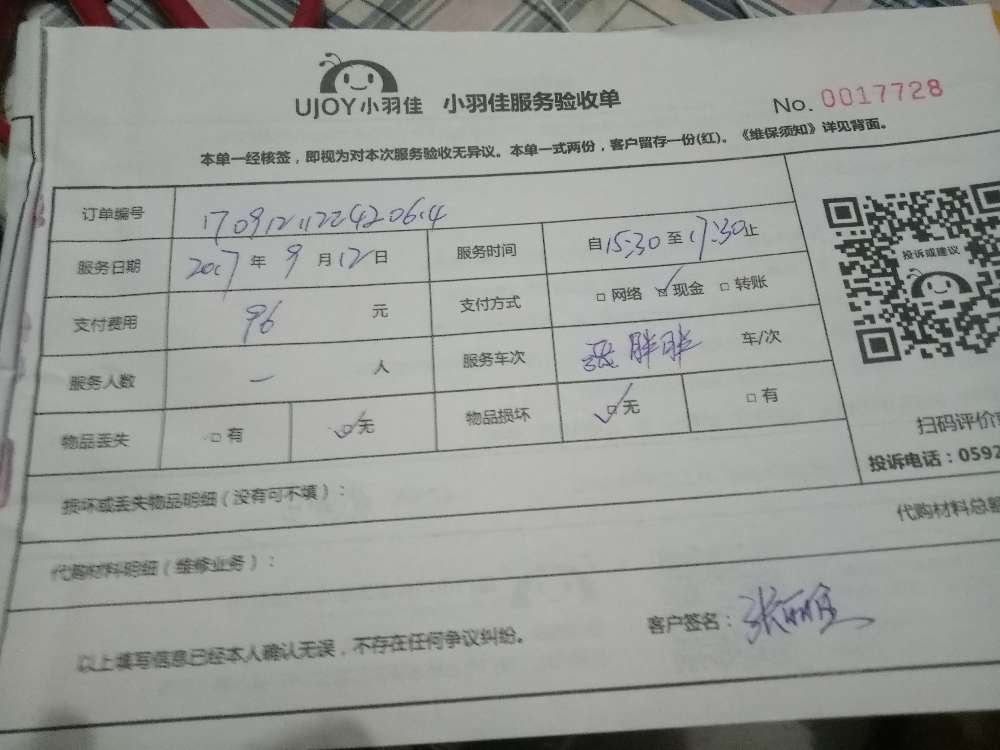 UJOY小羽佳 小羽佳服务验收单 No. 0017728
本单一经核签，即视为对本次服务验收无异议。本单一式两份，客户留存一份(红)。《维保须知》详见背面。
订单编号 17091211224206.4
服务日期 2017 年 9 月 12 日 服务时间 自 15:30 至 17:30 止
支付费用 96 元 支付方式 □ 网络 ☑ 现金 □ 转账
服务人数 一 人 服务车次 张胖胖 车/次
物品丢失 □ 有 ☑ 无 物品损坏 ☑ 无 □ 有
投诉或建议
扫码评价
投诉电话：0592
损坏或丢失物品明细（没有可不填）：
代购材料总额
代购材料明细（维修业务）：
以上填写信息已经本人确认无误，不存在任何争议纠纷。 客户签名：张丽